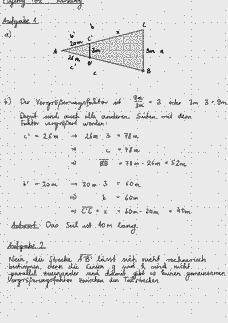 Aufgabe 1
a)
b
b'
20m
C'
x
C
A
3m
9m
a
26m
B'
c'
c
B
b) Der Vergrößerungsfaktor ist 9m/3m = 3 oder 3m · 3 = 9m.
Damit sind auch alle anderen Seiten mit dem
Faktor vergrößert worden:
c' = 26m → 26m · 3 = 78m
→ c = 78m
→ BB' = 78m - 26m = 52m
b' = 20m → 20m · 3 = 60m
→ b = 60m
→ CC' = x = 60m - 20m = 40m
Antwort: Das Seil ist 40m lang.
Aufgabe 2
Nein, die Strecke AB lässt sich nicht rechnerisch
bestimmen, denn die Linien g und h sind nicht
parallel zueinander und damit gibt es keinen gemeinsamen
Vergrößerungsfaktor zwischen den Dreiecken